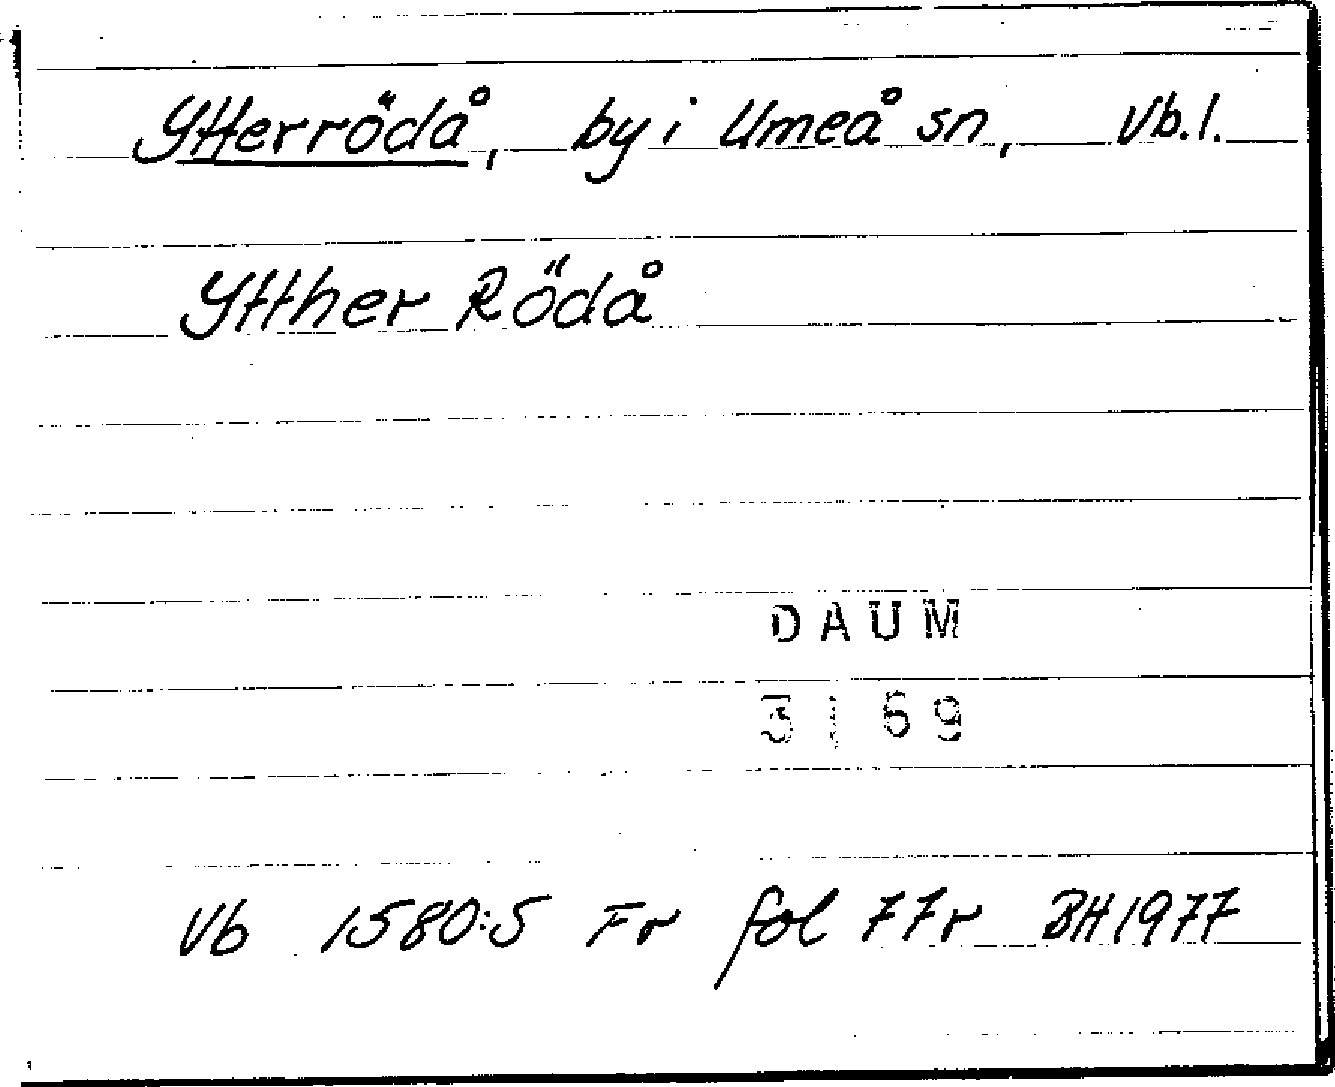 Ytterrödå, by i Umeå sn, Vb.l.
Ytther Rödå
DAUM
3169
Vb 1580:5 Fr fol 77r BH1977